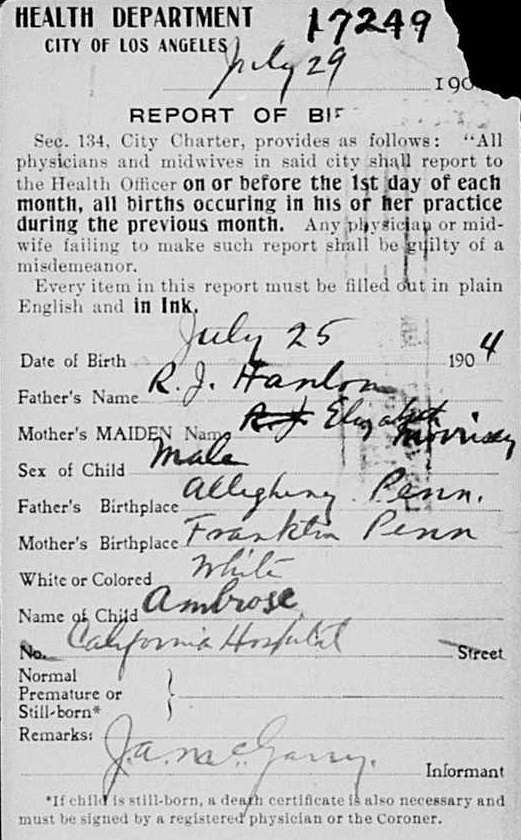 HEALTH DEPARTMENT
17249
CITY OF LOS ANGELES
July 29
190
REPORT OF BI
Sec. 134, City Charter, provides as follows: "All
physicians and midwives in said city shall report to
the Health Officer on or before the 1st day of each
month, all births occuring in his or her practice
during the previous month. Any physician or mid-
wife failing to make such report shall be guilty of a
misdemeanor.
Every item in this report must be filled out in plain
English and in Ink.
Date of Birth July 25 1904
Father's Name R. J. Hanlon
Mother's MAIDEN Name R J Elizabeth Morrisey
Sex of Child Male
Father's Birthplace Allegheny Penn.
Mother's Birthplace Franklin Penn
White or Colored White
Name of Child Ambrose
No. California Hospital Street
Normal
Premature or
Still-born*
Remarks:
J. A. McGarry. Informant
*If child is still-born, a death certificate is also necessary and
must be signed by a registered physician or the Coroner.